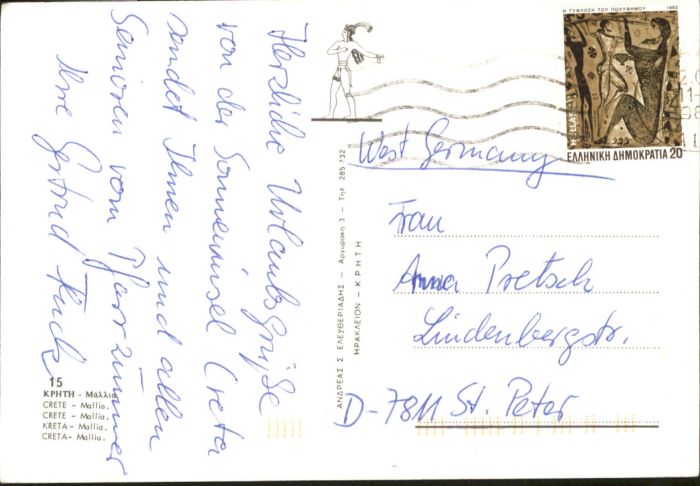 Herzliche Urlaubsgrüße
von der Sonneninsel Creta
sendet Ihnen und allen
Senioren vom Pfarrzimmer
Ihre Gertrud Fuchs
15
ΚΡΗΤΗ - Μάλλια
CRETE - Mallia.
CRETE - Mallia.
KRETA - Mallia.
CRETA - Mallia.
ΑΝΔΡΕΑΣ Σ ΕΛΕΥΘΕΡΙΑΔΗΣ — Αργυράκη 3 — Τηλ 285 132
ΗΡΑΚΛΕΙΟΝ - ΚΡΗΤΗ
Η ΤΥΦΛΩΣΗ ΤΟΥ ΠΟΛΥΦΗΜΟΥ 1983
HELLAS
ΕΛΛΗΝΙΚΗ ΔΗΜΟΚΡΑΤΙΑ 20
West Germany
Frau
Anna Pretsch
Lindenbergstr.
D-7811 St. Peter